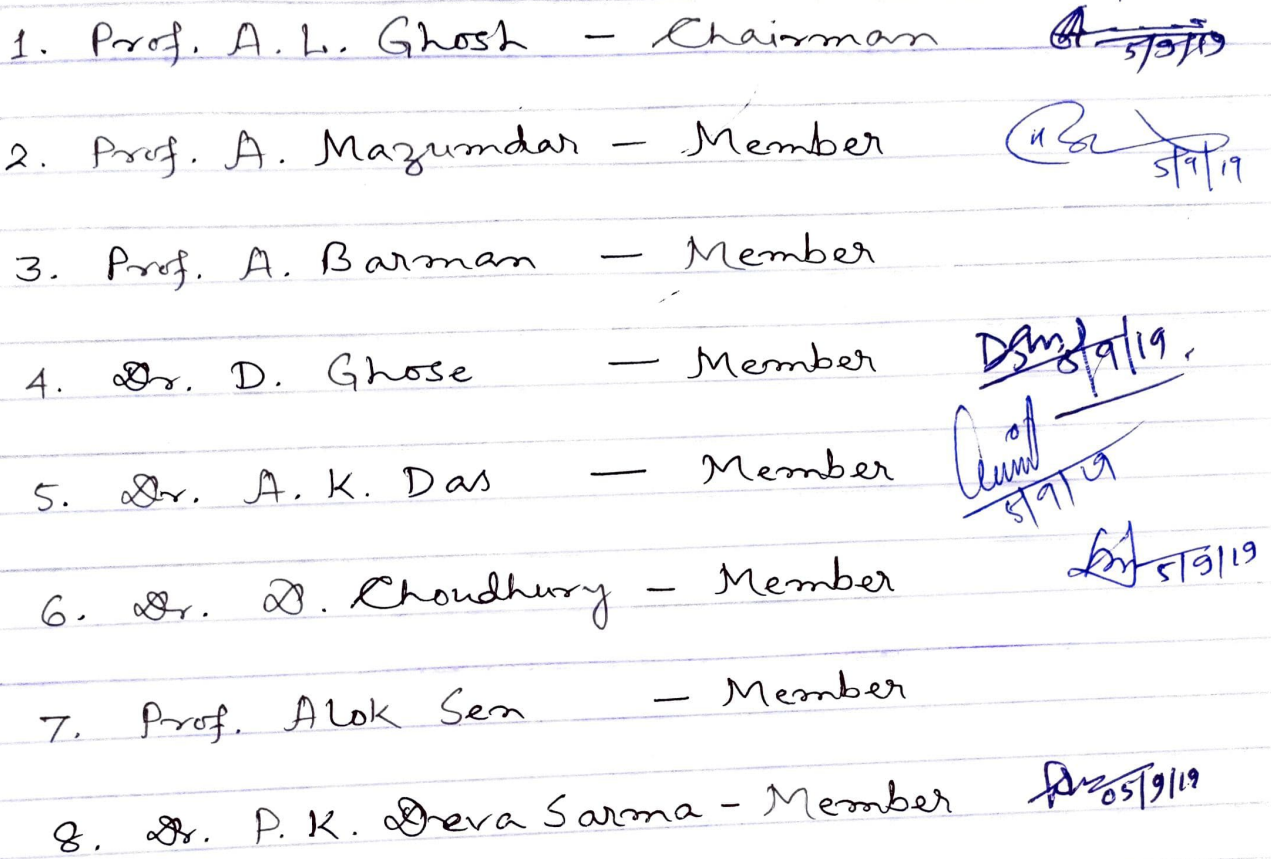 1. Prof. A. L. Ghosh - Chairman 5/9/19
2. Prof. A. Mazumdar - Member 5/9/19
3. Prof. A. Barman - Member
4. Dr. D. Ghose - Member 5/9/19.
5. Dr. A. K. Das - Member 5/9/19
6. Dr. D. Choudhury - Member 5/9/19
7. Prof. Alok Sen - Member
8. Dr. P. K. Deva Sarma - Member 05/9/19